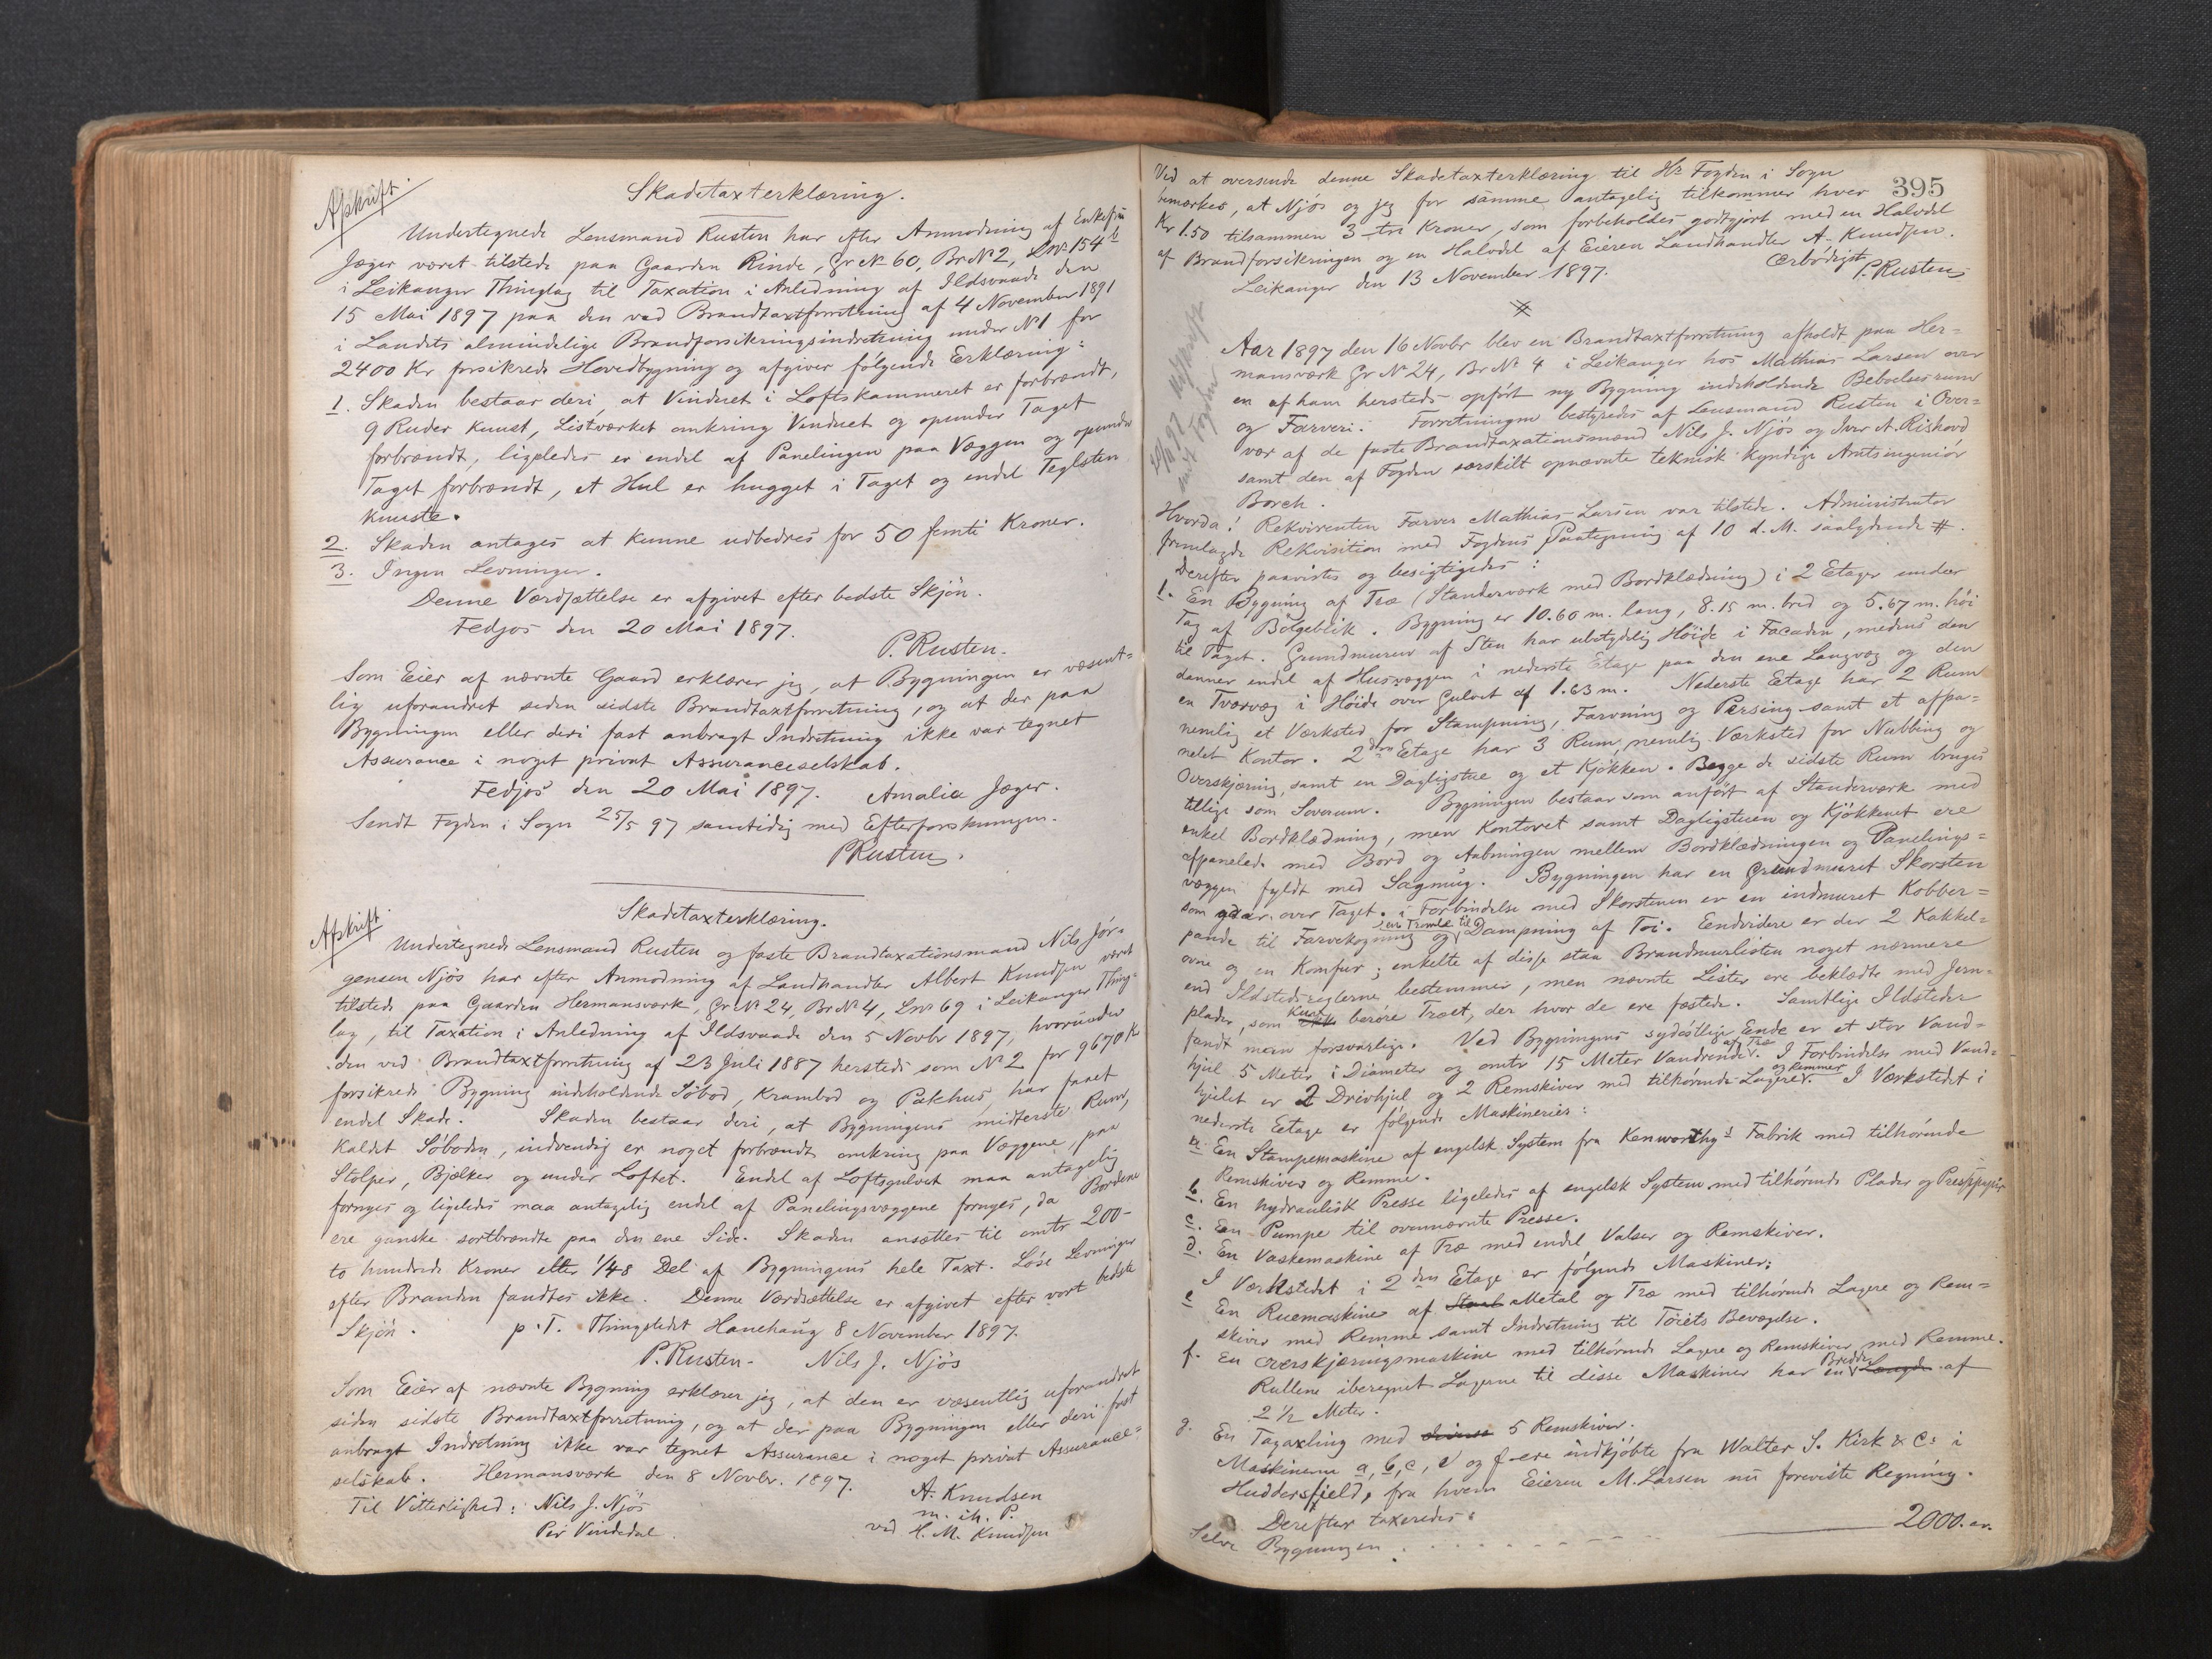 Afskrift.
Skadetaxterklæring.
Undertegnede Lensmand Rusten har efter Anmodning af Enkefru
Jæger været tilstede paa Gaarden Rinde, Gr No 60, Br No 2, Lno 154 b
i Leikanger Thinglag til Taxation i Anledning af Ildsvaade den
15 Mai 1897 paa den ved Brandtaxtforretning af 4 November 1891
i Landets almindelige Brandforsikringsindretning under No 1 for
2400 Kr forsikrede Hovedbygning og afgiver følgende Erklæring:
1. Skaden bestaar deri, at Vinduet i Loftskammeret er forbrændt,
9 Ruder knust, Listværket omkring Vinduet og opunder Taget
forbrændt, ligeledes er endel af Panelingen paa Væggen og opunder
Taget forbrændt, et Hul er hugget i Taget og endel Teglsten
knuste.
2. Skaden antages at kunne udbedres for 50 femti Kroner.
3. Ingen Levninger.
Denne Værdsættelse er afgivet efter bedste Skjøn.
Fedjos den 20 Mai 1897.
P. Rusten.
Som Eier af nævnte Gaard erklærer jeg, at Bygningen er væsent=
lig uforandret siden sidste Brandtaxtforretning, og at der paa
Bygningen eller deri fast anbragt Indretning ikke var tegnet
Assurance i noget privat Assuranceselskab.
Fedjos den 20 Mai 1897. Amalia Jæger.
Sendt Fogden i Sogn 25/5 97 samtidig med Efterforskningen.
P Rusten.
Afskrift.
Skadetaxterklæring.
Undertegnede Lensmand Rusten og faste Brandtaxationsmand Nils Jör=
gensen Njøs har efter Anmodning af Landhandler Albert Knudsen været
tilstede paa Gaarden Hermansværk, Gr No 24, Br No 4, Lno 69 i Leikanger Thing=
lag, til Taxation i Anledning af Ildsvaade den 5 Novbr 1897, hvorunder
den ved Brandtaxtforretning af 23 Juli 1887 herstede som No 2 for 9670 Kr
forsikrede Bygning indeholdende Søbod, Krambod og Pakhus, har faaet
endel Skade. Skaden bestaar deri, at Bygningens midterste Rum,
kaldet Søboden, indvendig er noget forbrændt omkring paa Væggene, paa
Stolper, Bjælker og under Loftet. Endel af Loftsgulvet maa antagelig
fornyes og ligeledes maa antagelig endel af Panelingsvæggene fornyes, da Bordene
ere ganske sortbrændte paa den ene Side. Skaden ansættes til omtr 200-
to hundrede Kroner eller 1/48 Del af Bygningens hele Taxt. Løse Levninger
efter Branden fandtes ikke. Denne Værdsættelse er afgivet efter vort bedste
Skjøn. p.T. Thingstedet Hanehaug 8 November 1897.
P. Rusten. Nils J. Njøs
Som Eier af nævnte Bygning erklærer jeg, at den er væsentlig uforandret
siden sidste Brandtaxtforretning, og at der paa Bygningen eller deri fast
anbragt Indretning ikke var tegnet Assurance i noget privat Assurance=
selskab. Hermansværk den 8 Novbr. 1897.
A. Knudsen
Til Vitterlighed: Nils J. Njøs
m. ih. P.
Per Vindedal.
ved H. M. Knudsen
395
Ved at oversende denne Skadetaxterklæring til Hr Fogden i Sogn
bemærkes, at Njøs og jeg for samme antagelig tilkommer hver
Kr 1.50 tilsammen 3 tre Kroner, som forbeholdes godtgjort med en Halvdel
af Brandforsikringen og en Halvdel af Eieren Landhandler A. Knudsen.
Leikanger den 13 November 1897. Ærbødigst
P. Rusten
Aar 1897 den 16 Novbr blev en Brandtaxtforretning afholdt paa Her=
mansværk Gr No 24, Br No 4 i Leikanger hos Mathias Larsen over
en af ham herstede opført ny Bygning indeholdende Beboelsesrum
og Farveri. Forretningen bestyredes af Lensmand Rusten i Over=
vær af de faste Brandtaxationsmænd Nils J. Njøs og Iver A. Rishovd
samt den af Fogden særskilt opnævnte teknisk kyndige Amtsingeniør
Borch.
Hvorda! Rekvirenten Farver Mathias Larsen var tilstede. Administrator
fremlagde Rekvisition med Fogdens Paategning af 10 d.M. saalydende #.
Derefter paavistes og besigtigedes:
1. En Bygning af Træ (Standerværk med Bordklædning) i 2 Etager under
Tag af Bølgeblik. Bygning er 10.60 m. lang, 8.15 m. bred og 5.67 m. høi
til Taget. Grundmuren af Sten har ubetydelig Høide i Facaden, medens den
danner endel af Husvæggen i nederste Etage paa den ene Langvæg og den
en Tværvæg i Høide over Gulvet af 1.63 m. Nederste Etage har 2 Rum
nemlig et Værksted for Stampning, Farvning og Persing samt et afpa=
nelet Kontor. 2den Etage har 3 Rum, nemlig Værksted for Nubbing og
Overskjæring, samt en Dagligstue og et Kjøkken. Begge de sidste Rum bruges
tillige som Soverum. Bygningen bestaar som anført af Standerværk med
enkel Bordklædning, men Kontoret samt Dagligstuen og Kjøkkenet ere
afpanelede med Bord og Aabningen mellem Bordklædningen og Panelings=
væggen fyldt med Sagmug. Bygningen har en Grundmuret Skorsten
som gaar over Taget. i Forbindelse med Skorstenen er en indmuret Kobber=
pande til Farvekogning og en Tromle til Dampning af Tøi. Endvidere er der 2 Kakkel=
ovne og en Komfur; enkelte af disse staa Brandmurlisten noget nærmere
end Ildstedsreglerne bestemmer, men nævnte Lister ere beklædte med Jern=
plader, som kun berøre Træet, der hvor de ere fæstede. Samtlige Ildsteder
fandt man forsvarlige. Ved Bygningens sydøstlige Ende er et stor Vand=
hjul 5 Meter i Diameter og omtr 15 Meter Vandrende af Træ. I Forbindelse med Vand=
hjulet er 2 Drivhjul og 2 Remskiver med tilhørende Lagere og Remmer. I Værkstedet i
nederste Etage er følgende Maskinerier:
a. En Stampemaskine af engelsk System fra Kenworthy's Fabrik med tilhørende
Remskiver og Remme.
b. En hydraulisk Presse ligeledes af engelsk System med tilhørende Plader og Presspapir
c. En Pumpe til ovennævnte Presse.
d. En Vaskemaskine af Træ med endel Valser og Remskiver.
I Værkstedet i 2den Etage er følgende Maskiner:
e En Ruemaskine af Staal Metal og Træ med tilhørende Lagere og Rem=
skiver med Remme samt Indretning til Tøiets Bevægelse.
f. En Overskjæringsmaskine med tilhørende Lagere og Remskiver med Remme.
Rullene iberegnet Lagerne til disse Maskiner har en Bredde Længde af
2 1/2 Meter.
g. En Tagaxling med diverse 5 Remskiver.
Maskinerne a, b, c, e og f ere indkjøbte fra Walter S. Kirk & Co i
Huddersfield, fra hvem Eieren M. Larsen nu foreviste Regning.
Derefter taxeredes:
Selve Bygningen . . . . . . . 2000. -